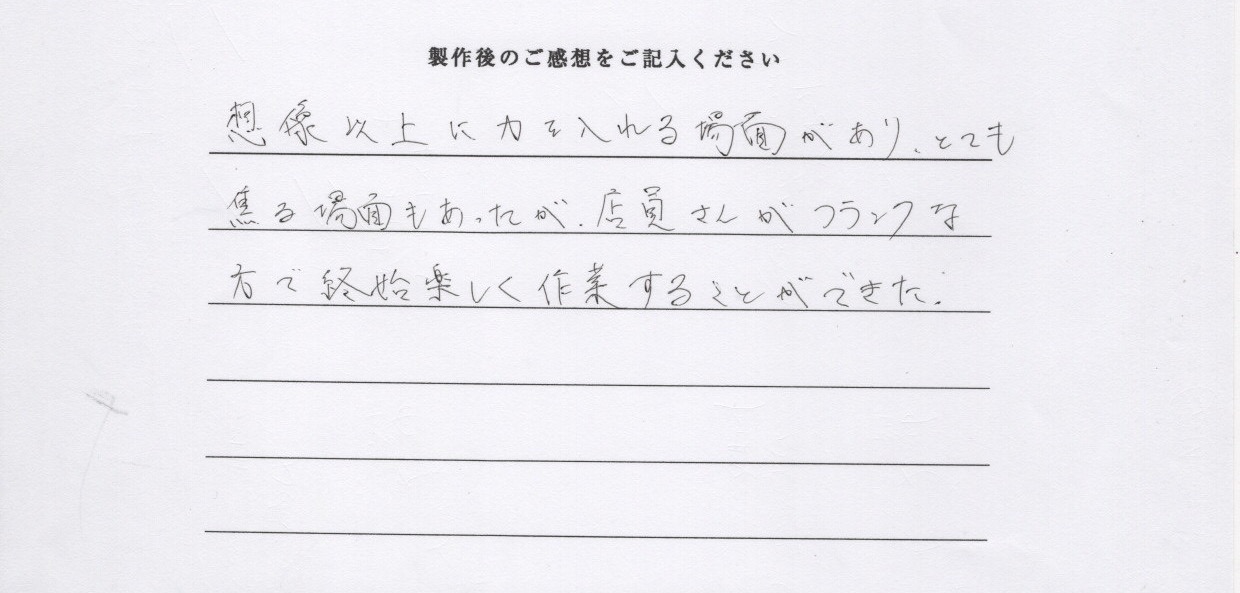 製作後のご感想をご記入ください
想像以上に力を入れる場面があり、とても
焦る場面もあったが、店員さんがフランクな
方で終始楽しく作業することができた。